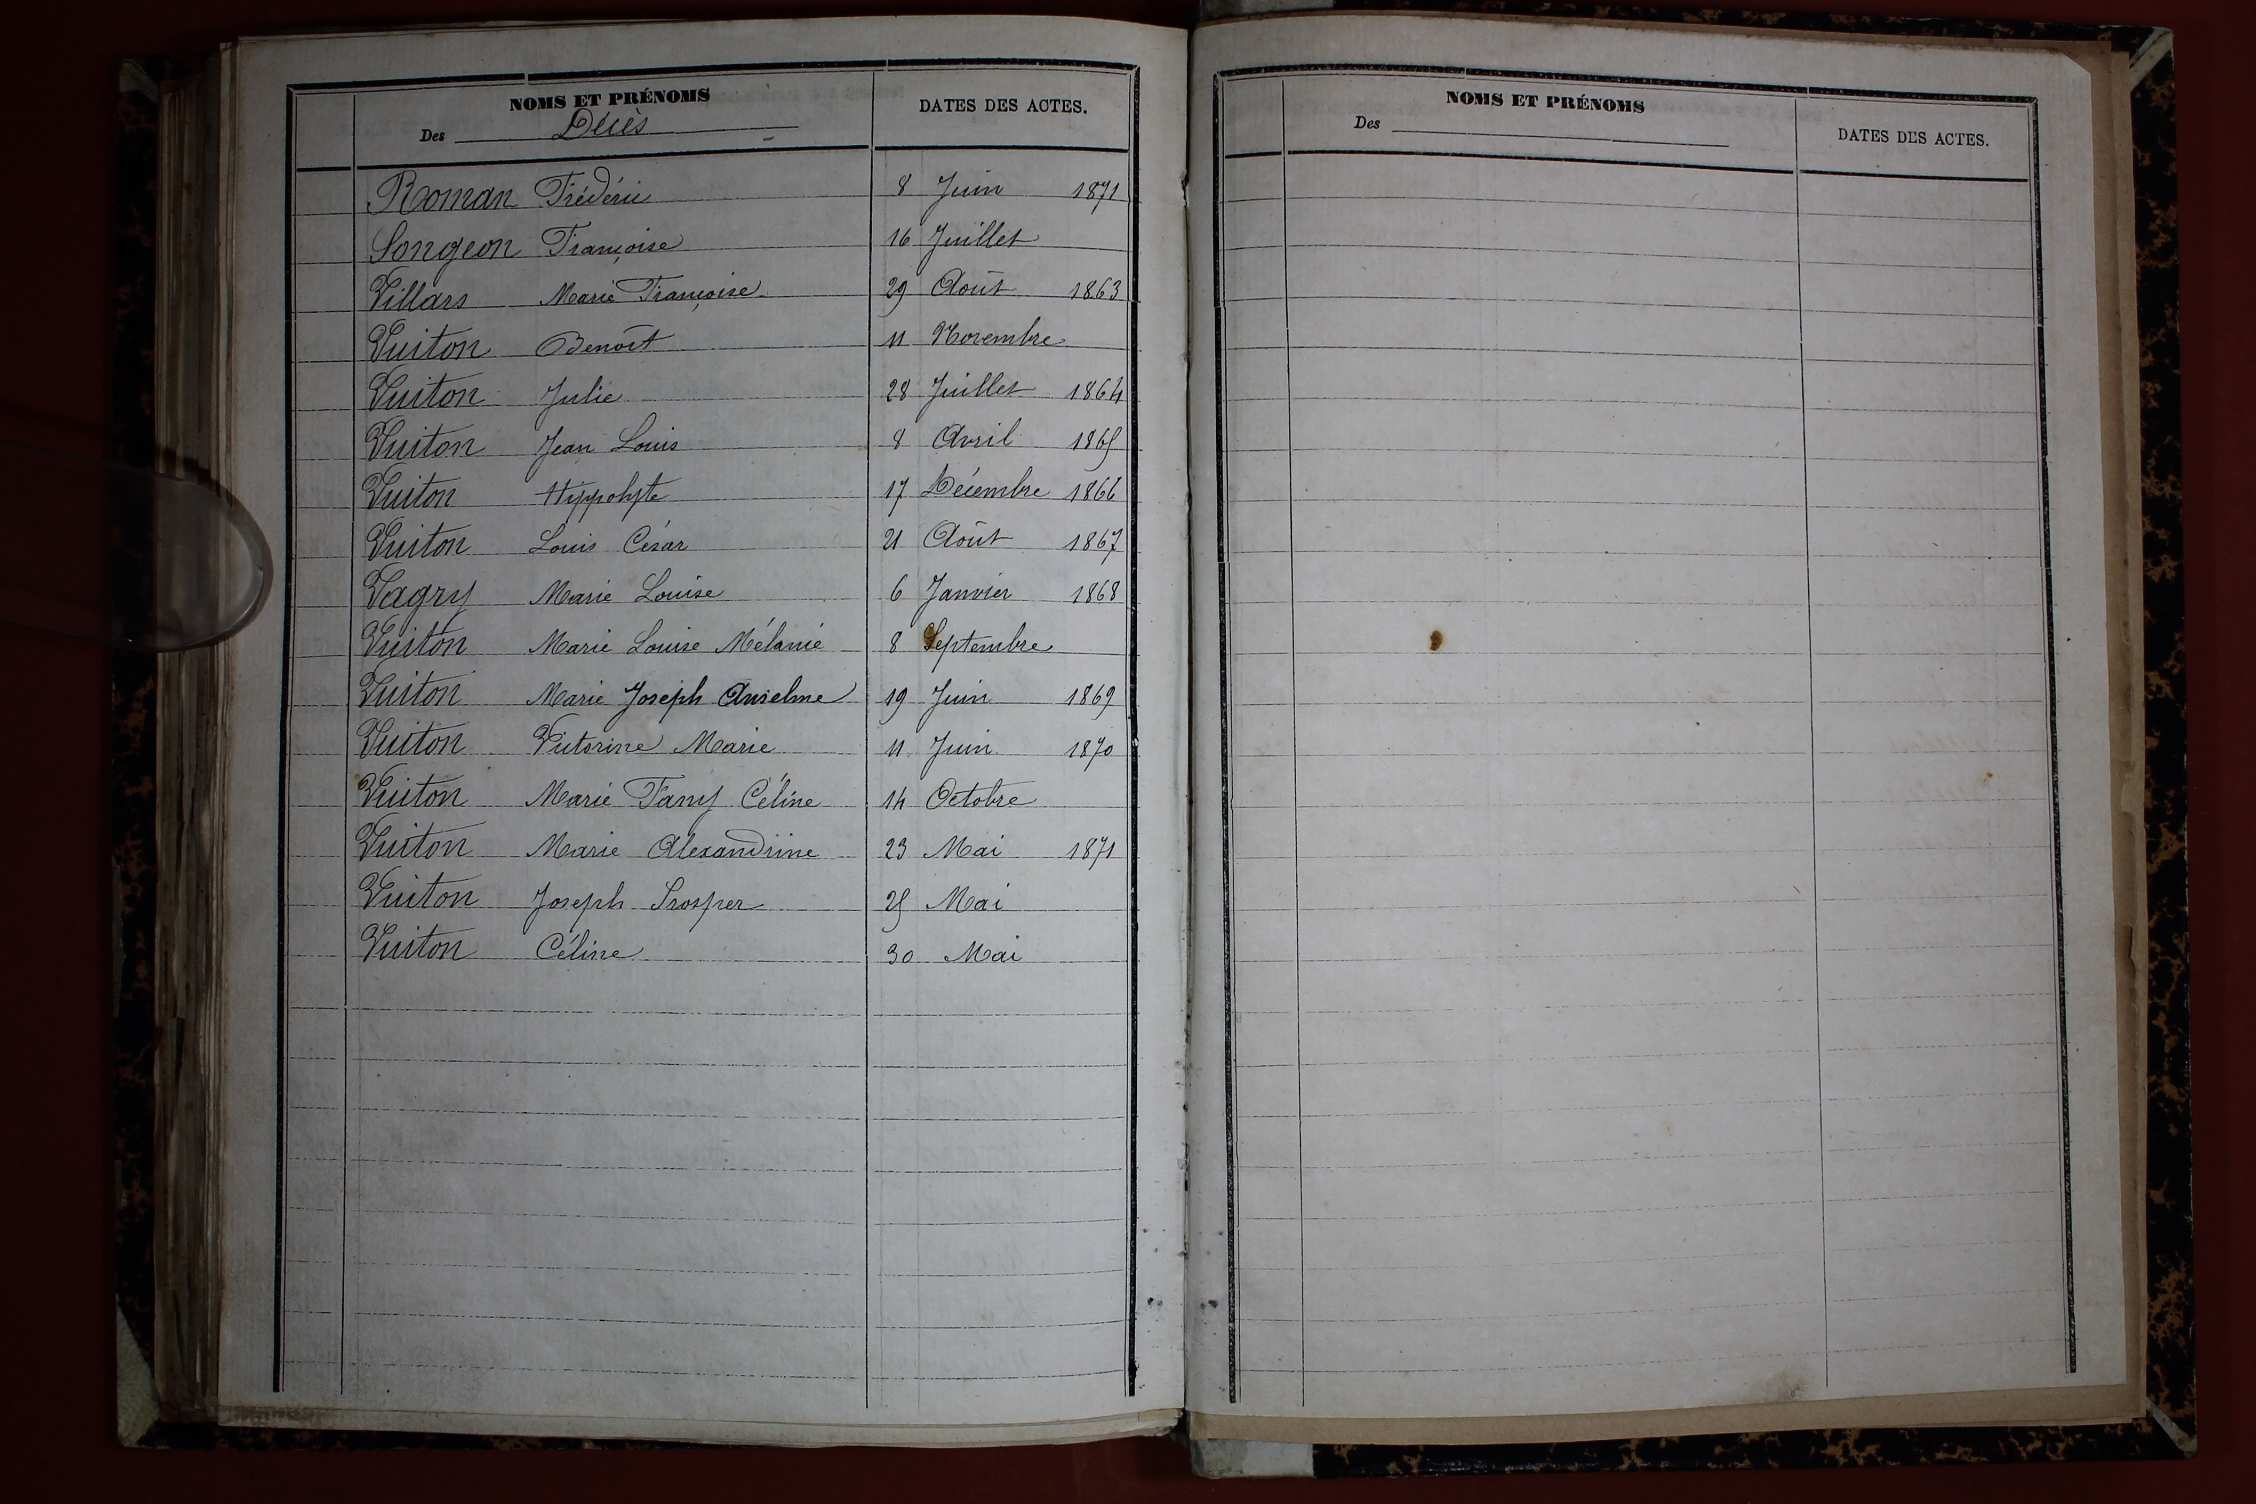 NOMS ET PRÉNOMS
Des Décès
DATES DES ACTES.
Roman Frédéric 8 Juin 1871
Songeon Françoise 16 Juillet
Villars Marie Françoise 29 Août 1863
Vuiton Benoît 11 Novembre
Vuiton Julie 28 Juillet 1864
Vuiton Jean Louis 8 Avril 1865
Vuiton Hyppolyte 17 Décembre 1866
Vuiton Louis César 21 Août 1867
Vagry Marie Louise 6 Janvier 1868
Vuiton Marie Louise Mélanie 8 Septembre
Vuiton Marie Joseph Anselme 19 Juin 1869
Vuiton Victorine Marie 11 Juin 1870
Vuiton Marie Fany Céline 14 Octobre
Vuiton Marie Alexandrine 23 Mai 1871
Vuiton Joseph Prosper 25 Mai
Vuiton Céline 30 Mai
NOMS ET PRÉNOMS
Des
DATES DES ACTES.